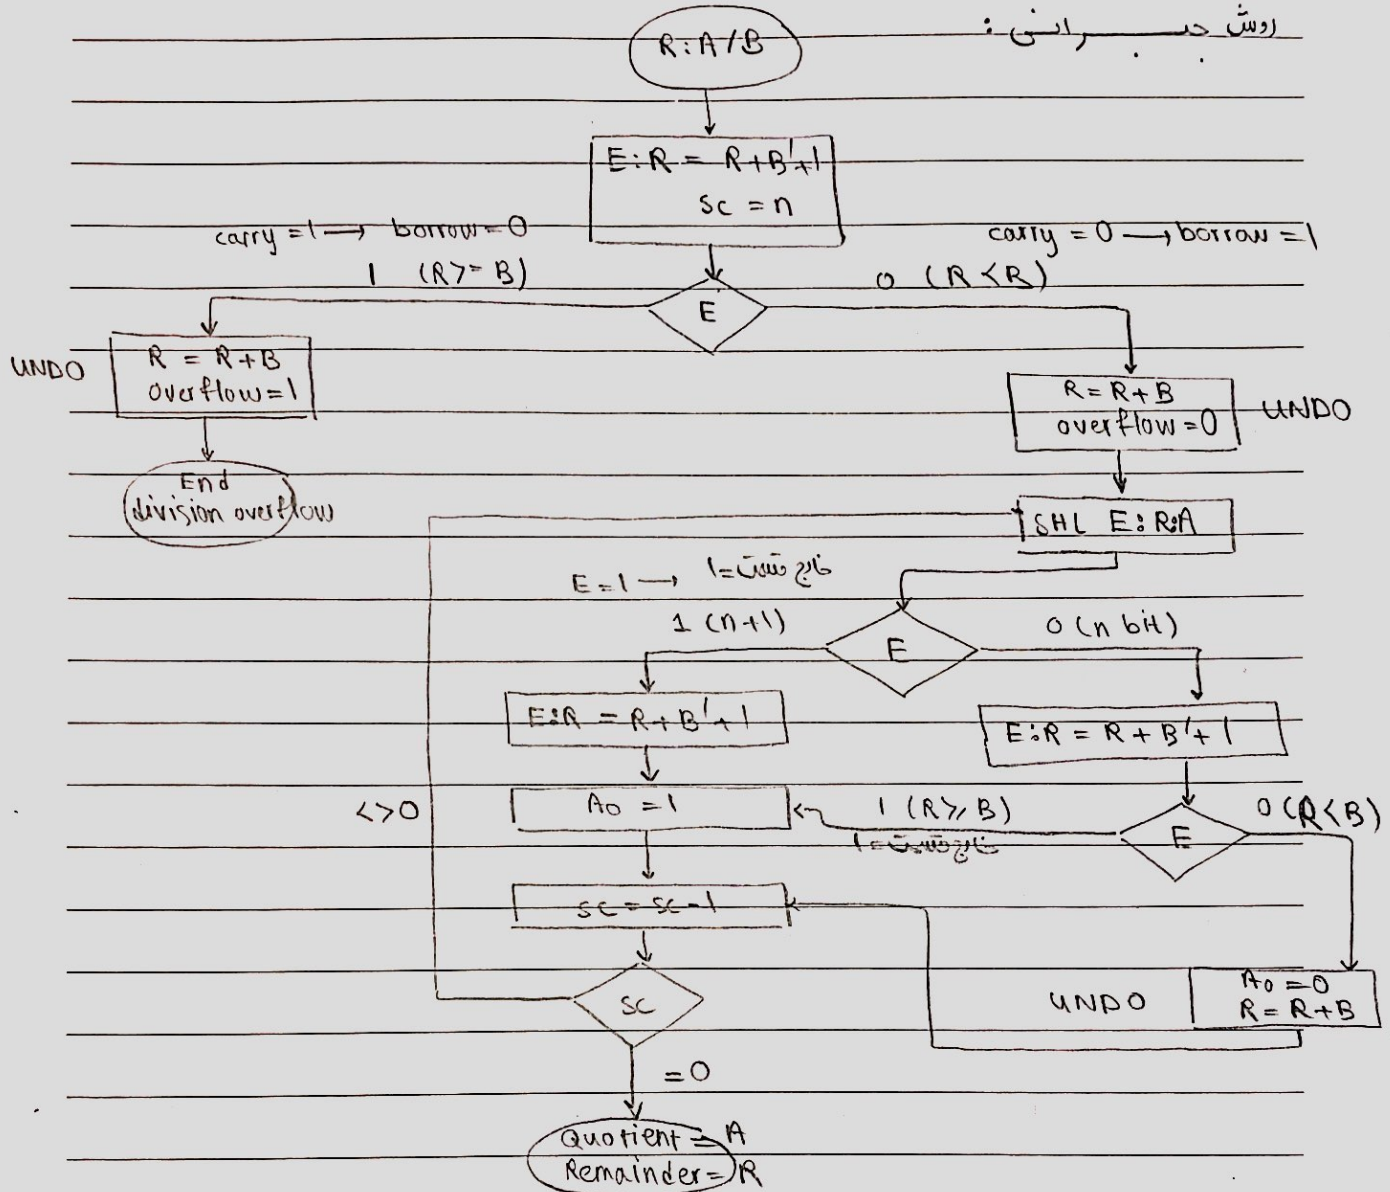 روش جبرانی :
R:A/B
E:R = R+B'+1
SC = n
carry = 1 → borrow = 0
carry = 0 → borrow = 1
1 (R>=B)
E
0 (R<B)
UNDO
R = R+B
overflow=1
R=R+B
overflow=0
UNDO
End
division overflow
SHL E:R:A
E=1 → خارج قسمت=1
1 (n+1)
E
0 (n bit)
E:R = R+B'+1
E:R = R+B'+1
<>0
A0 = 1
1 (R>,B)
خارج قسمت=1
E
0(R<B)
SC = SC-1
SC
UNDO
A0 = 0
R=R+B
=0
Quotient = A
Remainder = R